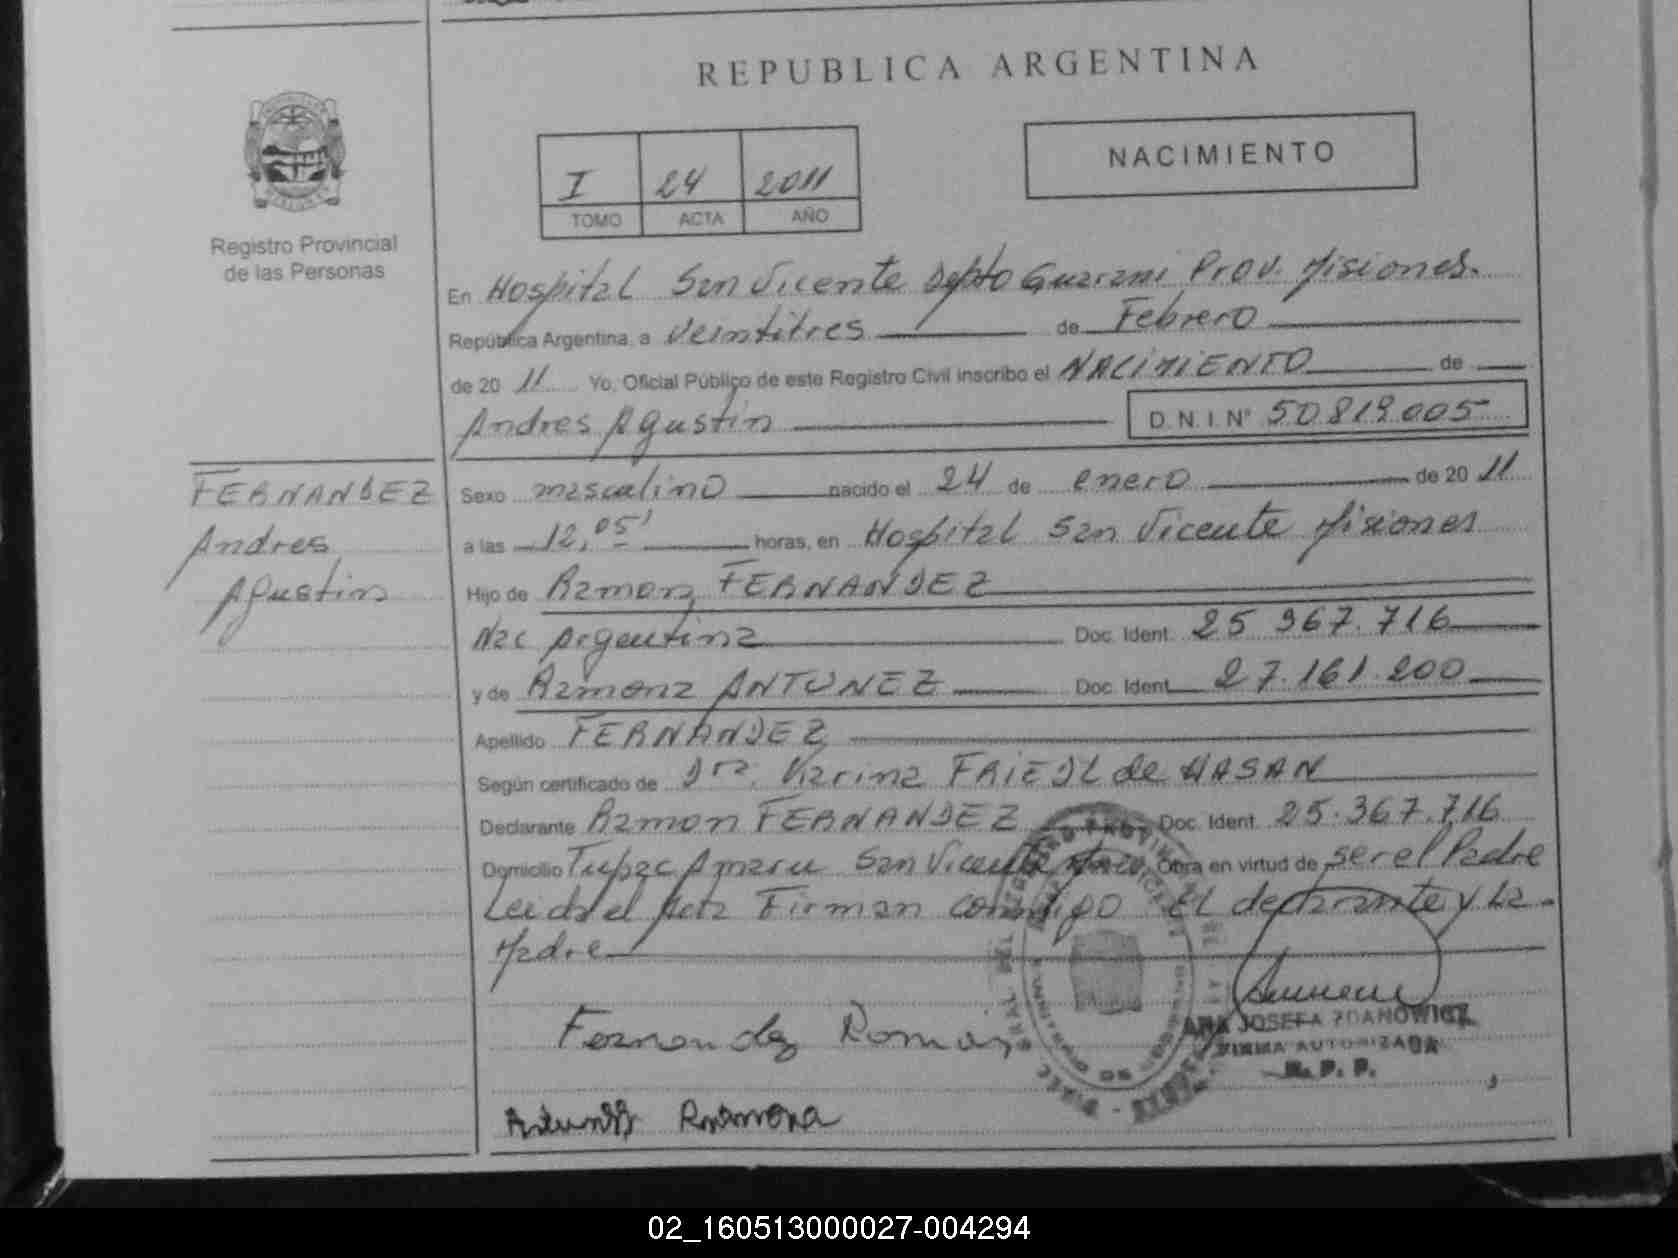 REPUBLICA ARGENTINA
I 24 2011
TOMO ACTA AÑO
NACIMIENTO
Registro Provincial
de las Personas
En Hospital San Vicente Depto Guarani Prov. Misiones.
República Argentina, a veintitres de Febrero
de 2011 Yo, Oficial Público de este Registro Civil inscribo el NACIMIENTO de
Andres Agustin D.N.I. Nº 50819005
FERNANDEZ
Andres
Agustin
Sexo masculino nacido el 24 de enero de 2011
a las 12,05' horas, en Hospital San Vicente Misiones
Hijo de Ramon FERNANDEZ
Nac Argentina Doc. Ident. 25 367.716
y de Ramona ANTUNEZ Doc. Ident. 27.161.200
Apellido FERNANDEZ
Según certificado de Dra. Karina FRIEDL de HASAN
Declarante Ramon FERNANDEZ Doc. Ident. 25.367.716
Domicilio Tupac Amaru San Vicente Obra en virtud de ser el Padre
Leida el Acta Firman conmigo El declarante y La
Madre
Fernandez Ramon
ANA JOSEFA ZDANOWICZ
FIRMA AUTORIZADA
R. P. P.
Antunez Ramona
02_160513000027-004294